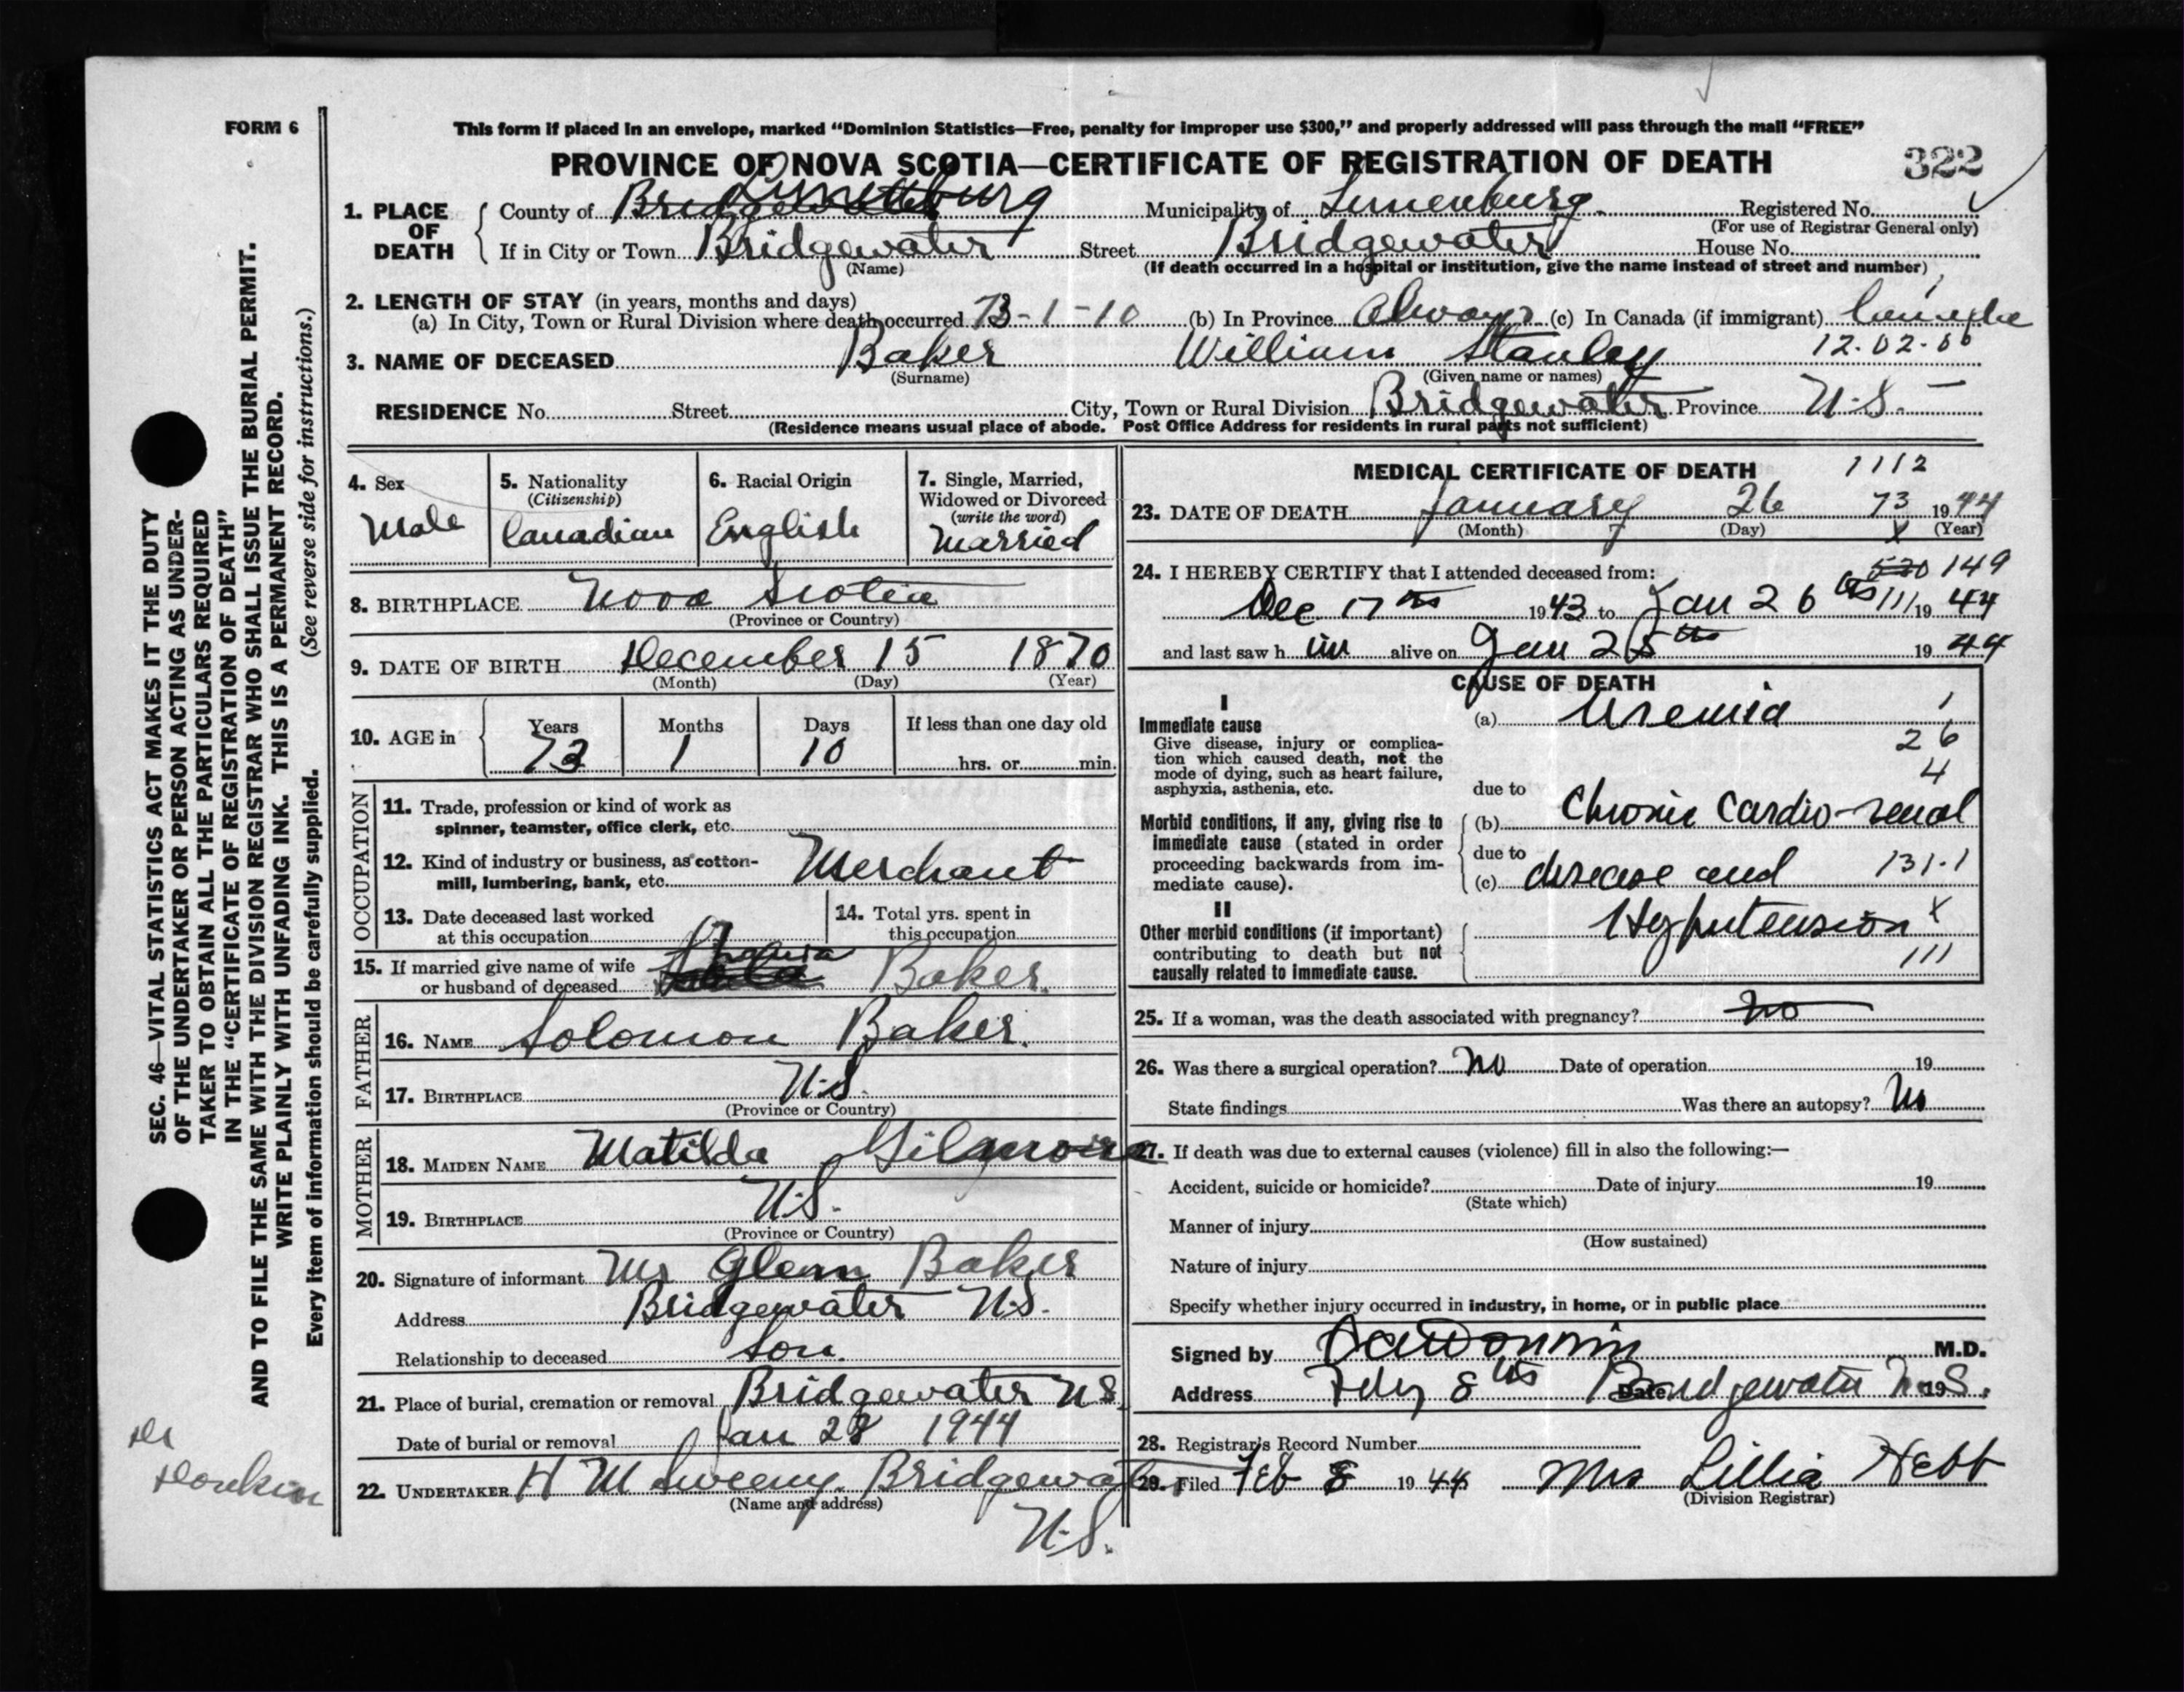 FORM 6
This form if placed in an envelope, marked “Dominion Statistics—Free, penalty for improper use $300,” and properly addressed will pass through the mail “FREE”
PROVINCE OF NOVA SCOTIA—CERTIFICATE OF REGISTRATION OF DEATH 322
1. PLACE OF DEATH
County of Bridgewater Lunenburg Municipality of Lunenburg. Registered No.
(For use of Registrar General only)
If in City or Town Bridgewater Street Bridgewater House No.
(Name) (If death occurred in a hospital or institution, give the name instead of street and number)
2. LENGTH OF STAY (in years, months and days)
(a) In City, Town or Rural Division where death occurred 73-1-10 (b) In Province Always (c) In Canada (if immigrant)
3. NAME OF DECEASED Baker William Stanley 12.02.00
(Surname) (Given name or names)
RESIDENCE No. Street City, Town or Rural Division Bridgewater Province N.S.
(Residence means usual place of abode. Post Office Address for residents in rural parts not sufficient)
4. Sex
Male
5. Nationality
(Citizenship)
Canadian
6. Racial Origin
English
7. Single, Married,
Widowed or Divorced
(write the word)
Married
8. BIRTHPLACE Nova Scotia
(Province or Country)
9. DATE OF BIRTH December 15 1870
(Month) (Day) (Year)
10. AGE in Years Months Days If less than one day old
73 1 10 hrs. or min.
OCCUPATION
11. Trade, profession or kind of work as
spinner, teamster, office clerk, etc.
12. Kind of industry or business, as cotton-
mill, lumbering, bank, etc. Merchant
13. Date deceased last worked
at this occupation
14. Total yrs. spent in
this occupation
15. If married give name of wife
or husband of deceased Baker.
FATHER
16. NAME Solomon Baker.
17. BIRTHPLACE N.S.
(Province or Country)
MOTHER
18. MAIDEN NAME Matilda Gilmore
19. BIRTHPLACE N.S.
(Province or Country)
20. Signature of informant Mr Glenn Baker
Address Bridgewater N.S.
Relationship to deceased Son.
21. Place of burial, cremation or removal Bridgewater N.S.
Date of burial or removal Jan 28 1944
22. UNDERTAKER H M Sweeny. Bridgewater
(Name and address)
N.S.
MEDICAL CERTIFICATE OF DEATH 1112
23. DATE OF DEATH January 26 73 1944
(Month) (Day) X (Year)
24. I HEREBY CERTIFY that I attended deceased from: 520 149
Dec 17th 1943 to Jan 26th 111 1944
and last saw h im alive on Jan 25th 1944
CAUSE OF DEATH
I
Immediate cause
Give disease, injury or complica-
tion which caused death, not the
mode of dying, such as heart failure,
asphyxia, asthenia, etc.
(a) Uremia 1
26
4
due to
Morbid conditions, if any, giving rise to
immediate cause (stated in order
proceeding backwards from im-
mediate cause).
(b) Chronic Cardio-renal
due to
(c) disease and 131.1
II
Other morbid conditions (if important)
contributing to death but not
causally related to immediate cause.
Hypertension X
111
25. If a woman, was the death associated with pregnancy? no
26. Was there a surgical operation? No Date of operation 19
State findings Was there an autopsy? No
27. If death was due to external causes (violence) fill in also the following:—
Accident, suicide or homicide? Date of injury 19
(State which)
Manner of injury
(How sustained)
Nature of injury
Specify whether injury occurred in industry, in home, or in public place
Signed by M.D.
Address Feby 8th Date Bridgewater N.S. 19
28. Registrar's Record Number
29. Filed Feb 8 1944 Mrs Lillia Hebb
(Division Registrar)
SEC. 46—VITAL STATISTICS ACT MAKES IT THE DUTY
OF THE UNDERTAKER OR PERSON ACTING AS UNDER-
TAKER TO OBTAIN ALL THE PARTICULARS REQUIRED
IN THE “CERTIFICATE OF REGISTRATION OF DEATH”
AND TO FILE THE SAME WITH THE DIVISION REGISTRAR WHO SHALL ISSUE THE BURIAL PERMIT.
WRITE PLAINLY WITH UNFADING INK. THIS IS A PERMANENT RECORD.
(See reverse side for instructions.)
Every item of information should be carefully supplied.
Dr
Donkin